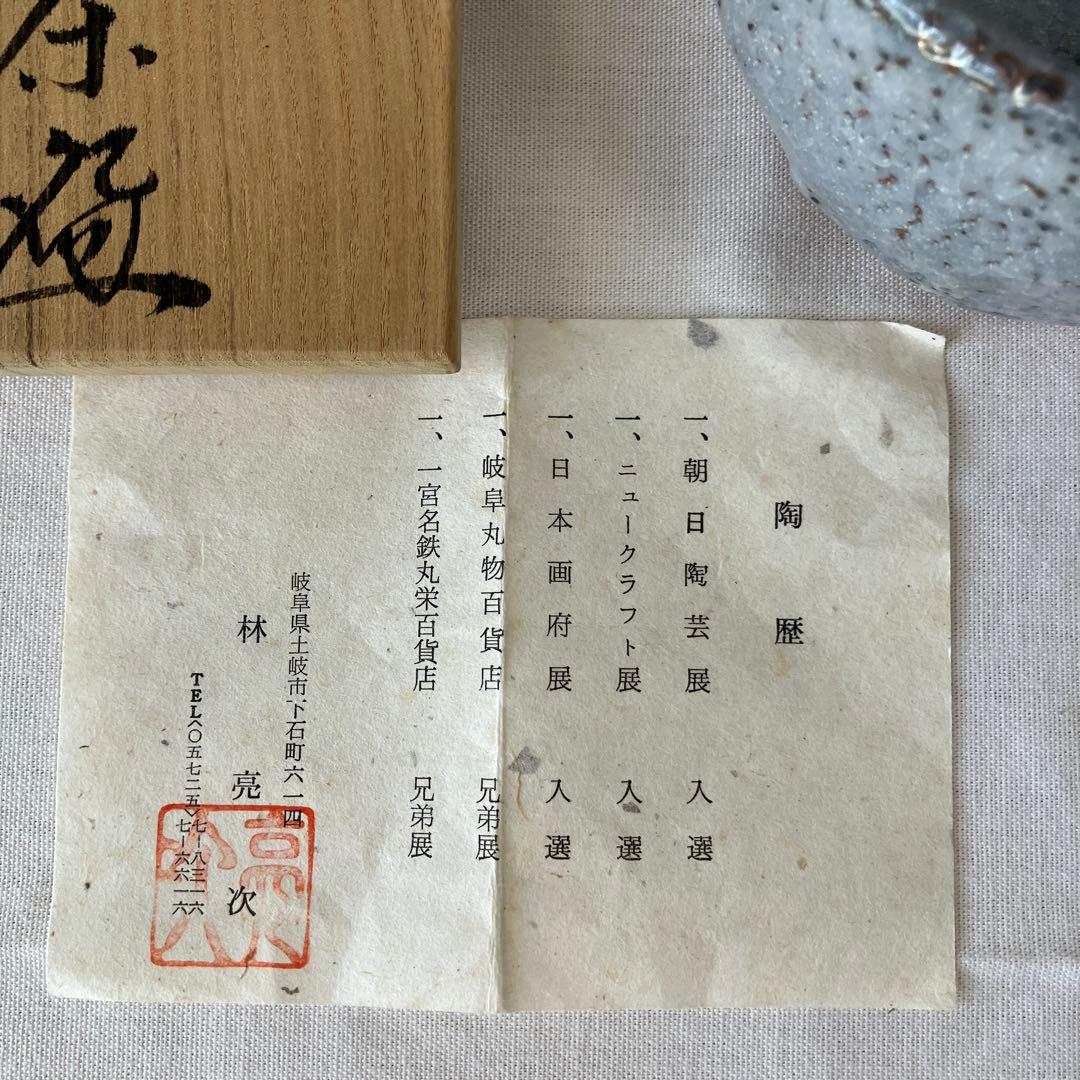 茶碗
陶歴
一、朝日陶芸展 入選
一、ニュークラフト展 入選
一、日本画府展 入選
一、岐阜丸物百貨店 兄弟展
一、一宮名鉄丸栄百貨店 兄弟展
岐阜県土岐市下石町六一四
林亮次
TEL〈〇五七二五〉七-八三一六
七-六六一六